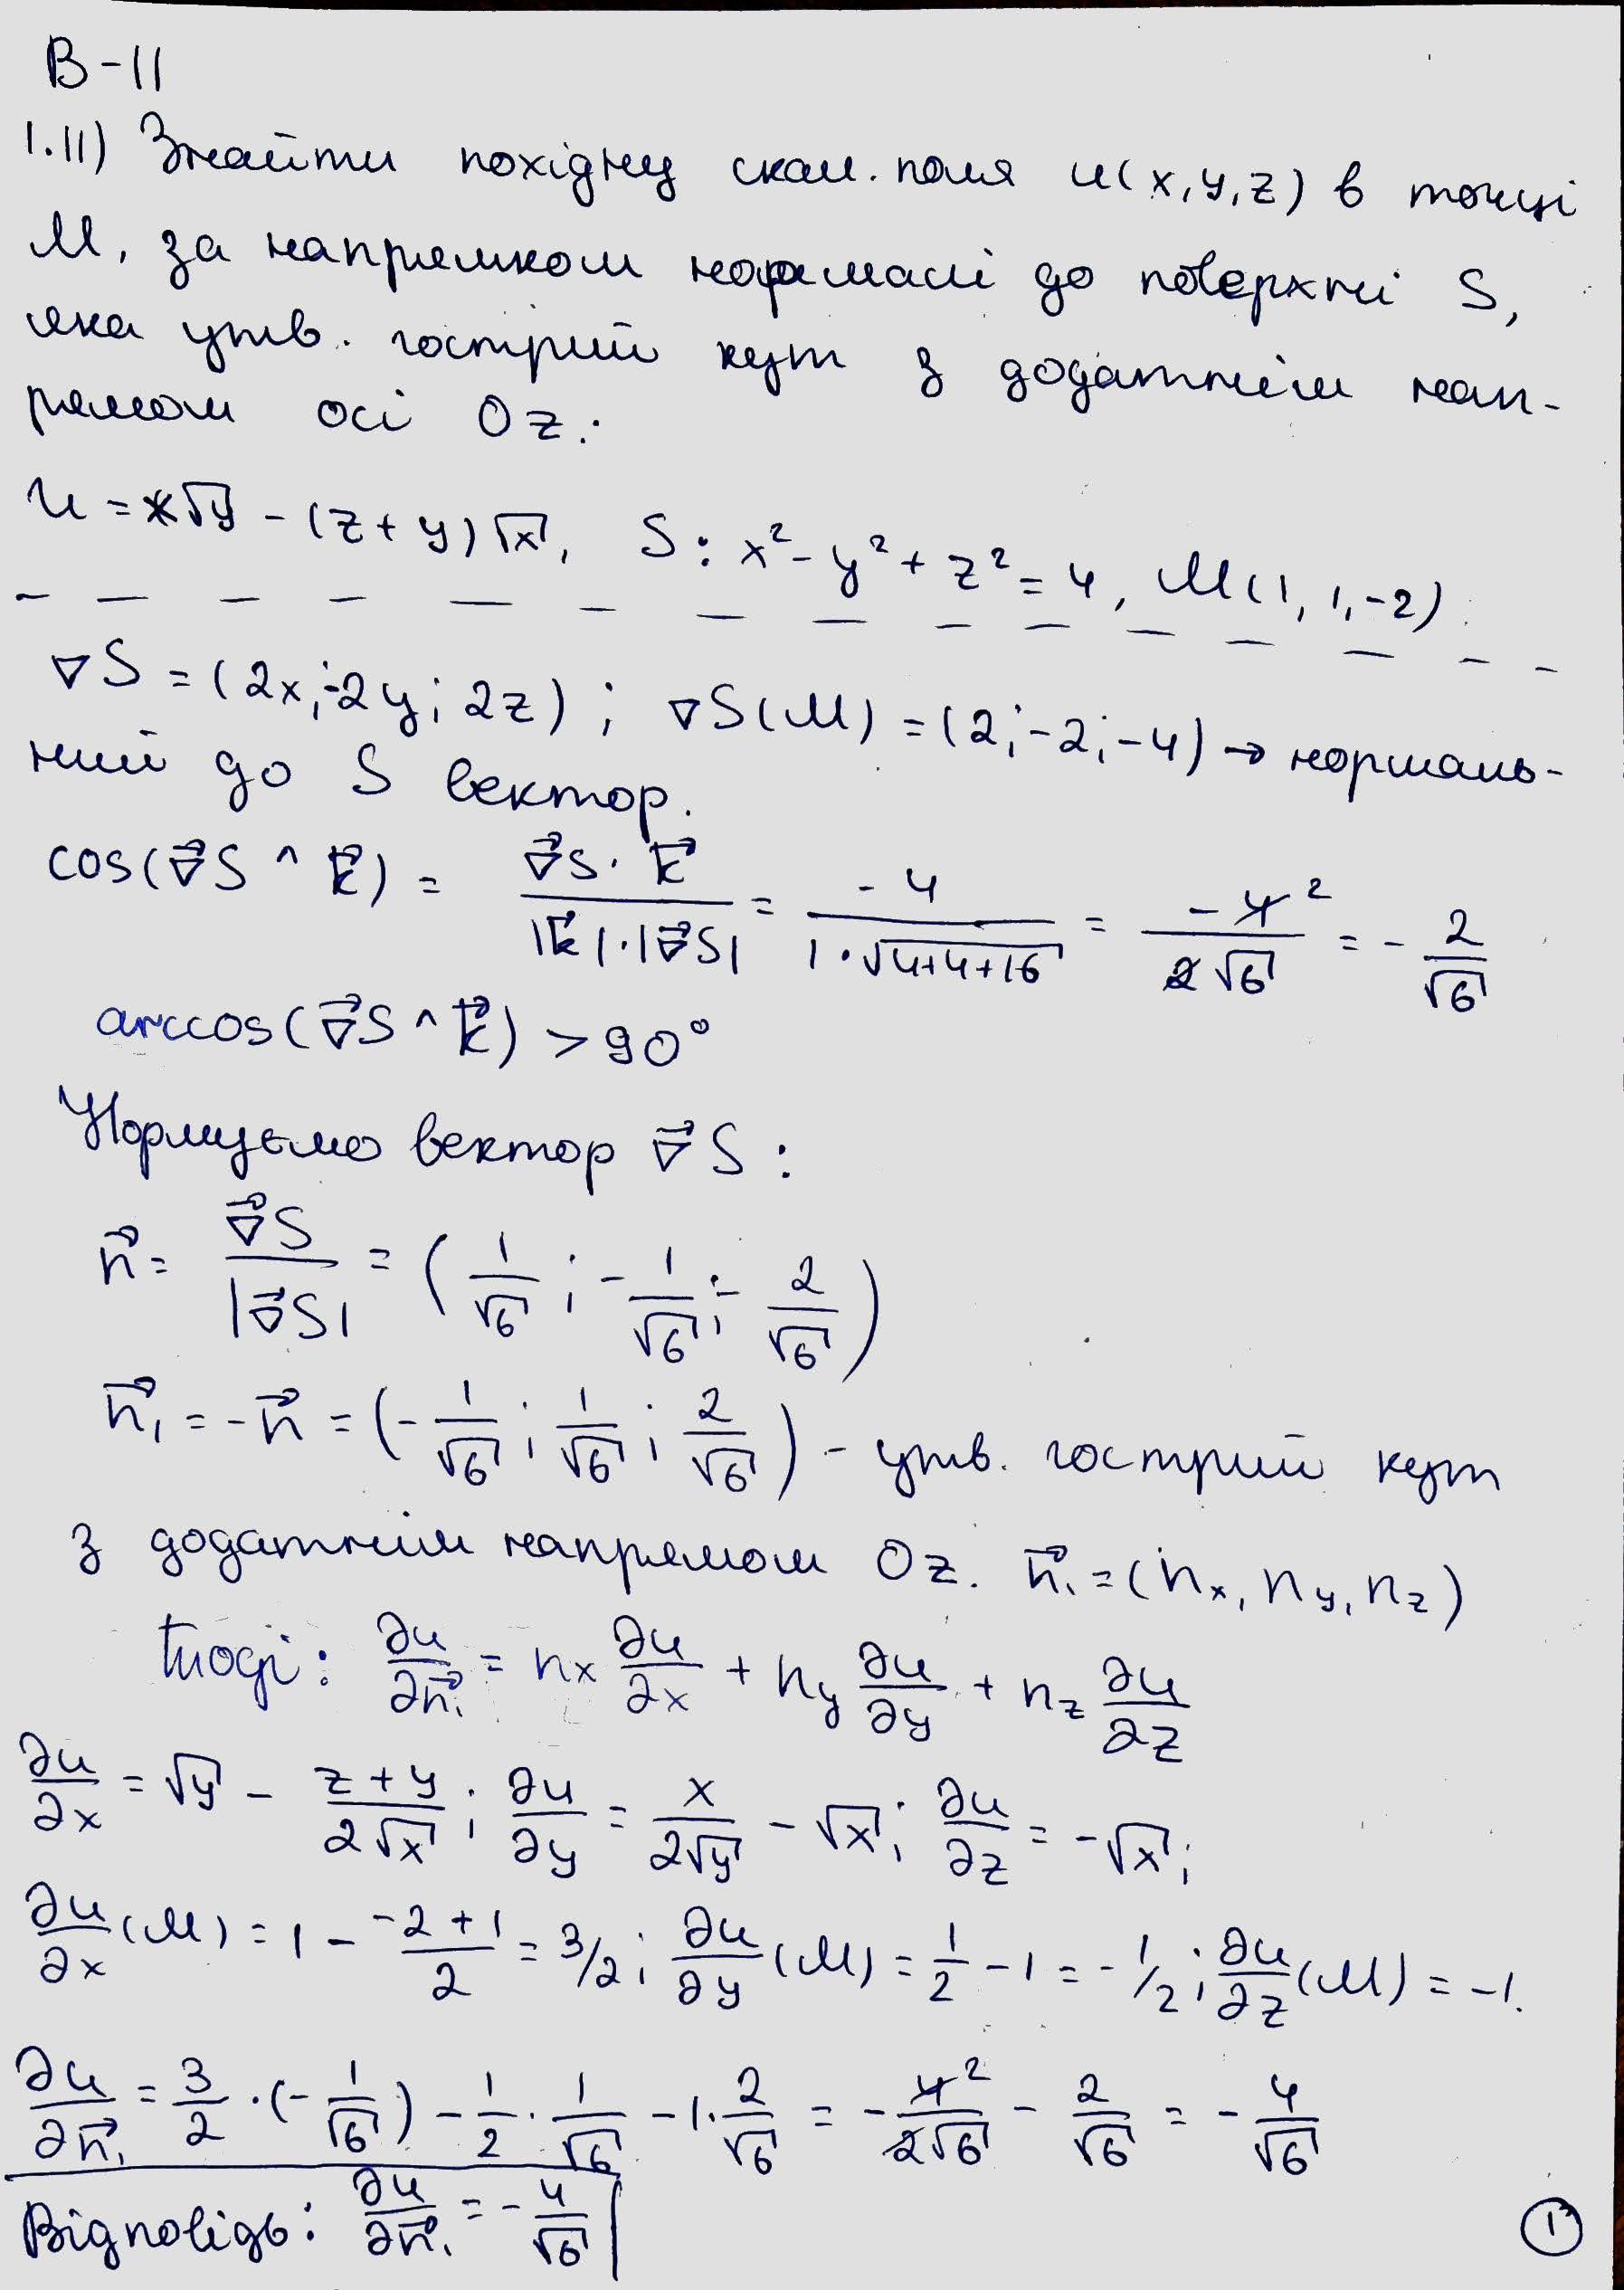 В-11
1.11) Знайти похідну скал. поля u(x,y,z) в точці
M, за напрямком нормалі до поверхні S,
яка утв. гострий кут з додатнім нап-
рямом осі Oz:
u = x√y - (z+y)√x, S: x² - y² + z² = 4, M(1, 1, -2)
∇S = (2x; -2y; 2z); ∇S(M) = (2; -2; -4) → нормаль-
ний до S вектор.
cos(∇⃗S ^ k⃗) = ∇⃗S · k⃗ / |k⃗|·|∇⃗S| = -4 / 1·√4+4+16 = -4 2 / 2√6 = - 2/√6
arccos(∇⃗S ^ k⃗) > 90°
Нормуємо вектор ∇⃗S:
n⃗ = ∇⃗S / |∇⃗S| = (1/√6; -1/√6; -2/√6)
n⃗₁ = -n⃗ = (-1/√6; 1/√6; 2/√6) - утв. гострий кут
з додатнім напрямом Oz. n⃗₁ = (nₓ, n_y, n_z)
тоді: ∂u/∂n⃗₁ = nₓ ∂u/∂x + n_y ∂u/∂y + n_z ∂u/∂z
∂u/∂x = √y - z+y/2√x; ∂u/∂y = x/2√y - √x; ∂u/∂z = -√x;
∂u/∂x(M) = 1 - -2+1/2 = 3/2; ∂u/∂y(M) = 1/2 - 1 = -1/2; ∂u/∂z(M) = -1.
∂u/∂n⃗₁ = 3/2·(-1/√6) - 1/2·1/√6 - 1·2/√6 = -4 2/2√6 - 2/√6 = -4/√6
Відповідь: ∂u/∂n⃗₁ = -4/√6
1